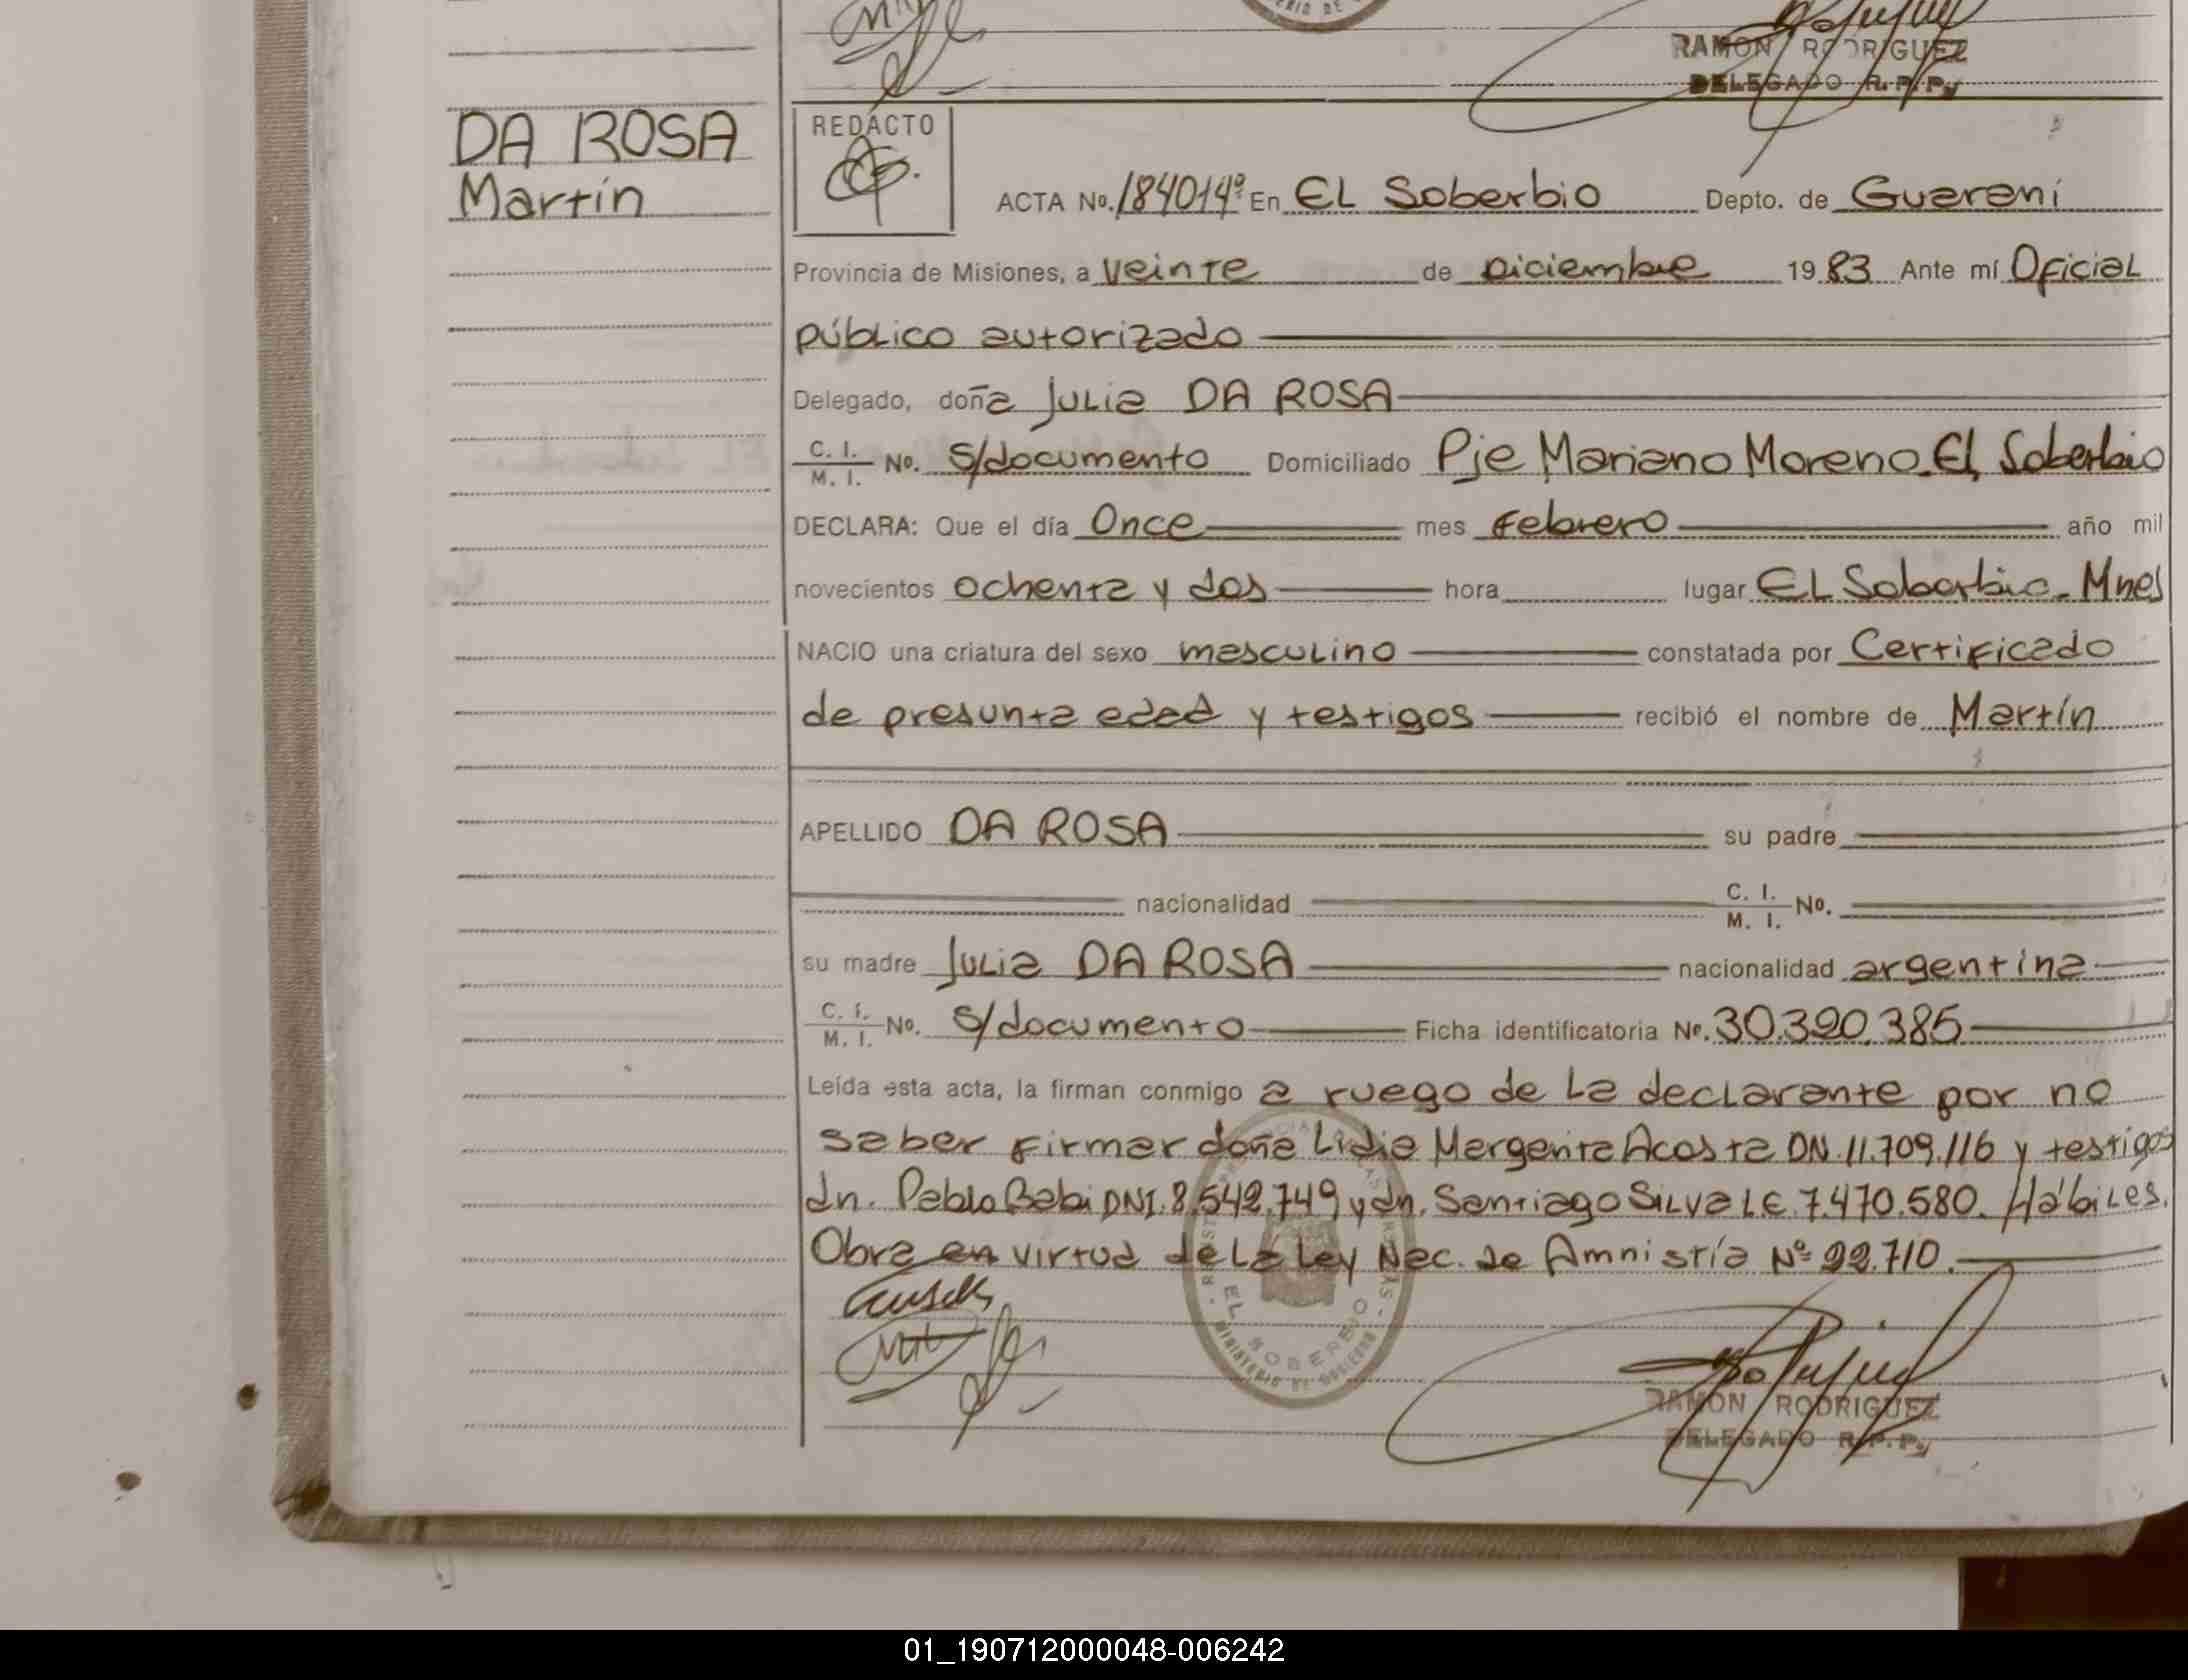 RAMON RODRIGUEZ
DELEGADO R.P.P.
DA ROSA
Martín
REDACTO
ACTA No. 184014º En EL Soberbio Depto. de Guaraní
Provincia de Misiones, a veinte de Diciembre 1983 Ante mí Oficial
público autorizado
Delegado, doña Julia DA ROSA
C. I. / M. I. No. S/documento Domiciliado Pje Mariano Moreno El Soberbio
DECLARA: Que el día Once mes Febrero año mil
novecientos ochenta y dos hora lugar EL Soberbio - Mnes
NACIO una criatura del sexo masculino constatada por Certificado
de presunta edad y testigos recibió el nombre de Martín
APELLIDO DA ROSA su padre
nacionalidad C. I. / M. I. No.
su madre Julia DA ROSA nacionalidad argentina
C. I. / M. I. No. S/documento Ficha identificatoria Nº. 30.320.385
Leída esta acta, la firman conmigo a ruego de la declarante por no
saber firmar doña Lidia Margarita Acosta DN. 11.709.116 y testigos
dn. Pablo Babi DNI. 8.542.749 y dn. Santiago Silva L.E. 7.470.580. Hábiles.
Obra en virtud de la Ley Nac. de Amnistía Nº 22.710.
EL SOBERBIO
MINISTERIO DE GOBIERNO
RAMON RODRIGUEZ
DELEGADO R.P.P.
01_190712000048-006242